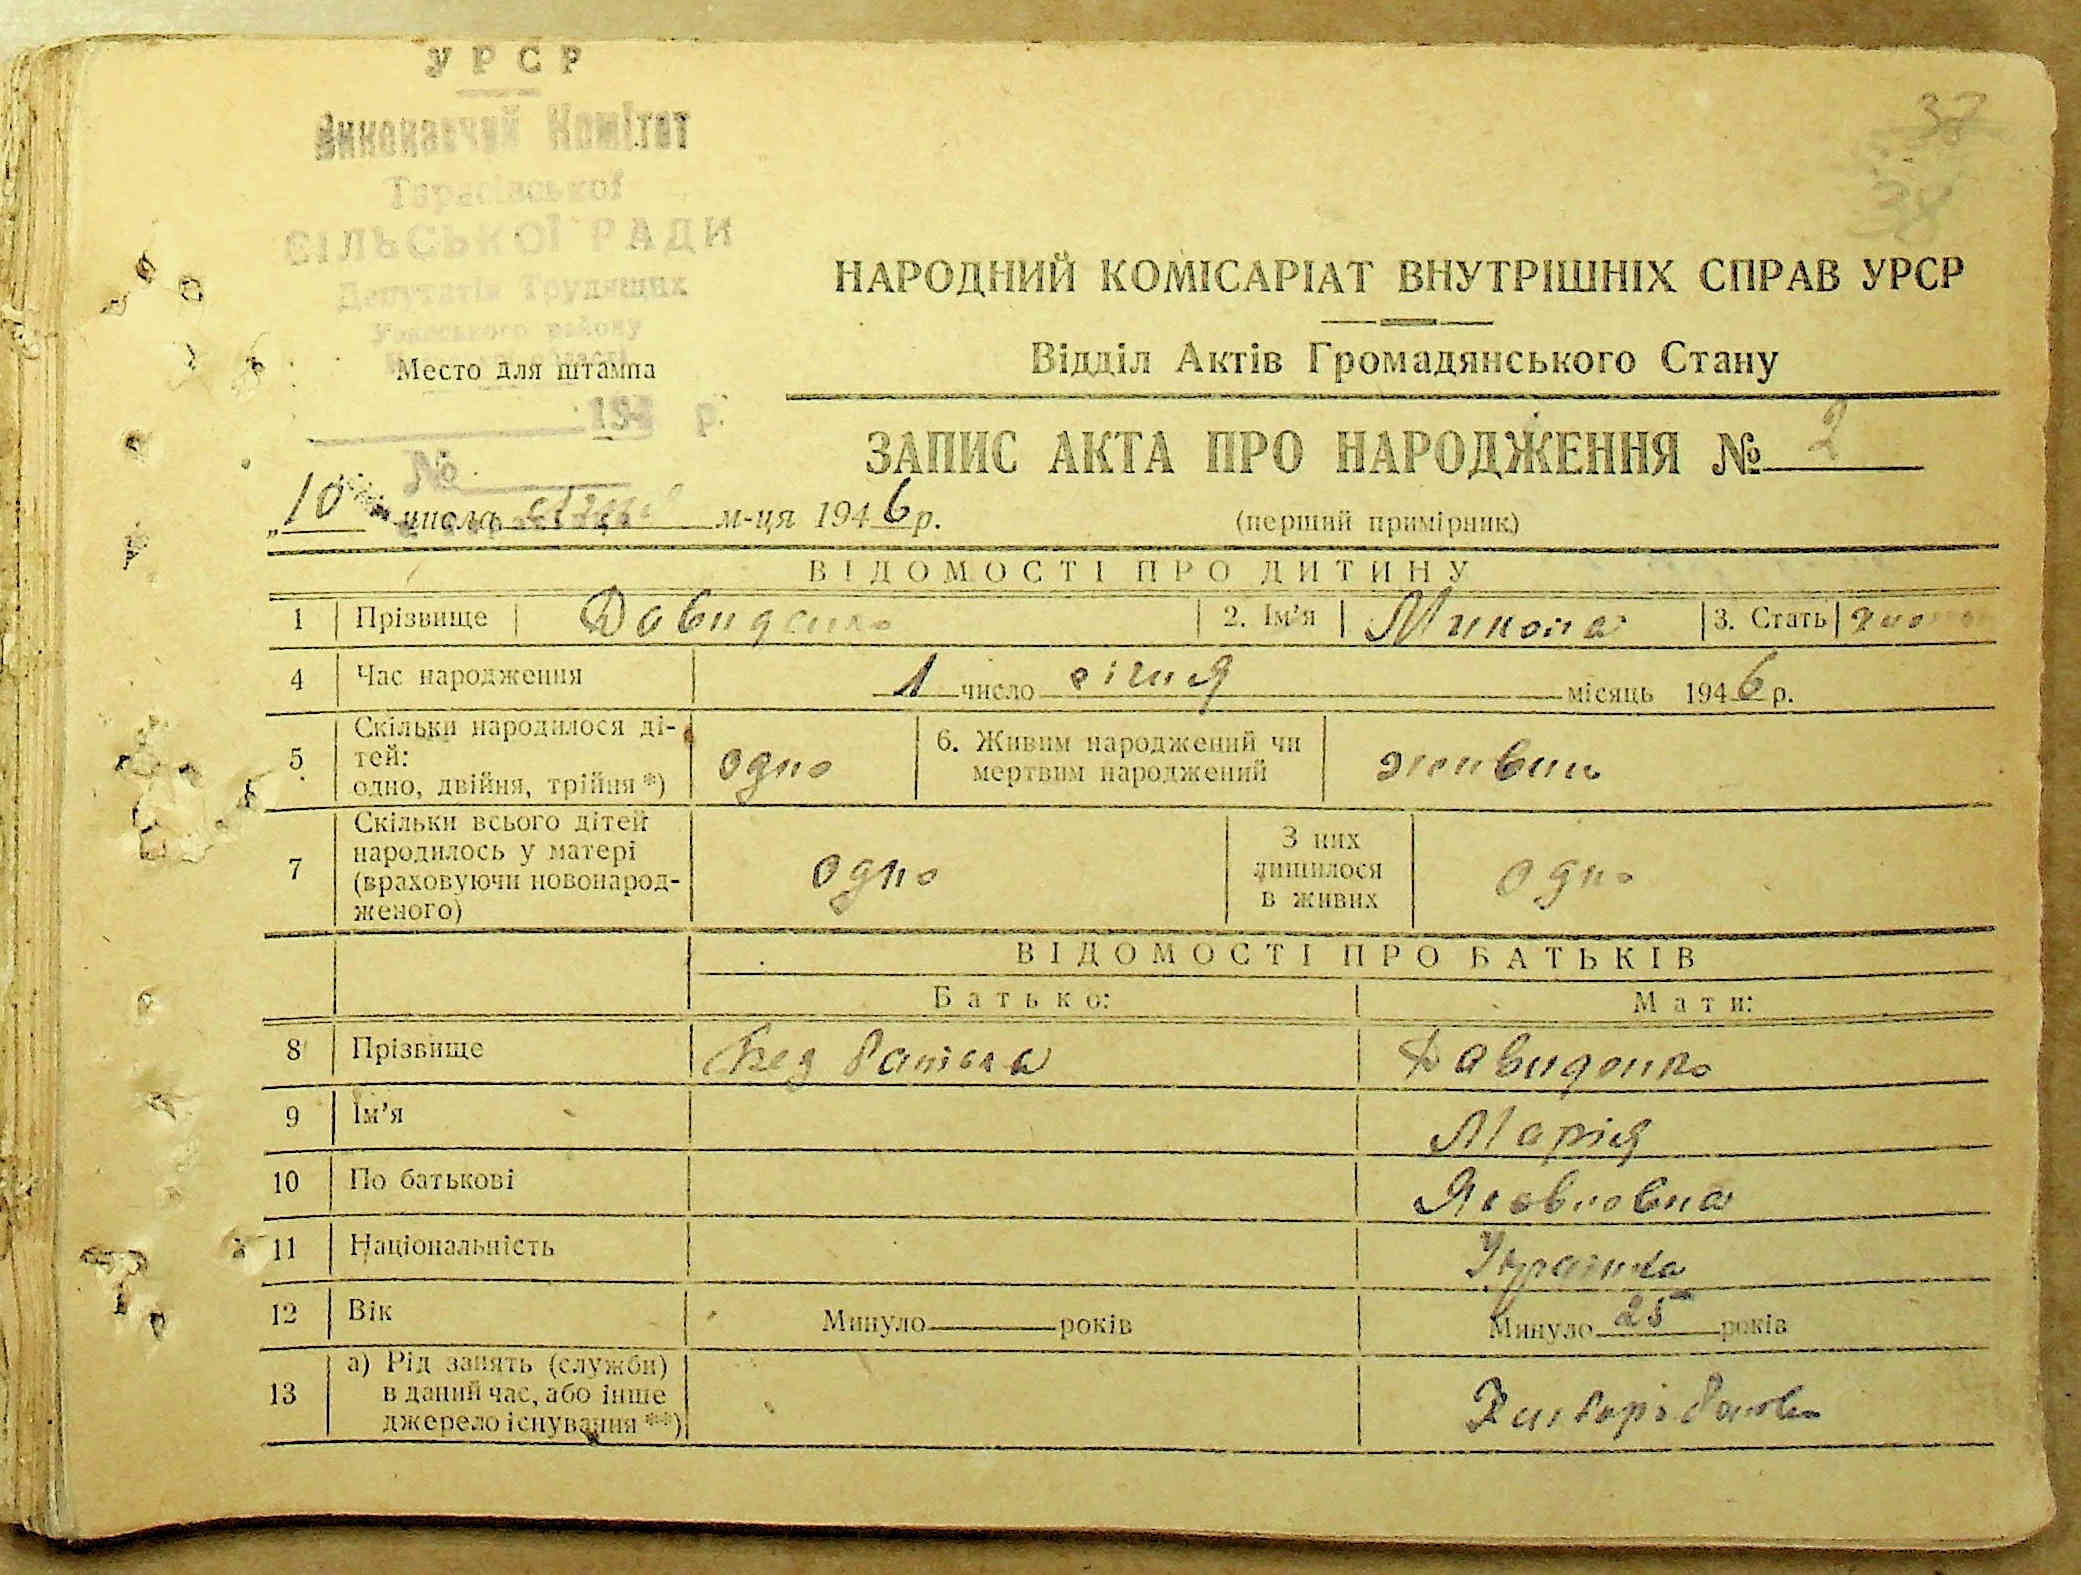 37
38
УРСР
Виконавчий Комітет
Тарасівської
СІЛЬСЬКОЇ РАДИ
Депутатів Трудящих
району
Место для штампа
194 р.
№
НАРОДНИЙ КОМІСАРІАТ ВНУТРІШНІХ СПРАВ УРСР
Відділ Актів Громадянського Стану
ЗАПИС АКТА ПРО НАРОДЖЕННЯ № 2
„10 числа січня м-ця 1946 р. (перший примірник)
ВІДОМОСТІ ПРО ДИТИНУ
1 Прізвище Давиденко 2. Ім'я Микола 3. Стать
4 Час народження 1 число січня місяць 1946 р.
5 Скільки народилося ді-
тей:
одно, двійня, трійня *) одно 6. Живим народжений чи
мертвим народжений живим
7 Скільки всього дітей
народилось у матері
(враховуючи новонарод-
женого) одно З них
лишилося
в живих одно
ВІДОМОСТІ ПРО БАТЬКІВ
Батько: Мати:
8 Прізвище Без батька Давиденко
9 Ім'я Марія
10 По батькові Яковловна
11 Національність Українка
12 Вік Минуло років Минуло 25 років
13 а) Рід занять (служби)
в даний час, або інше
джерело існування **)